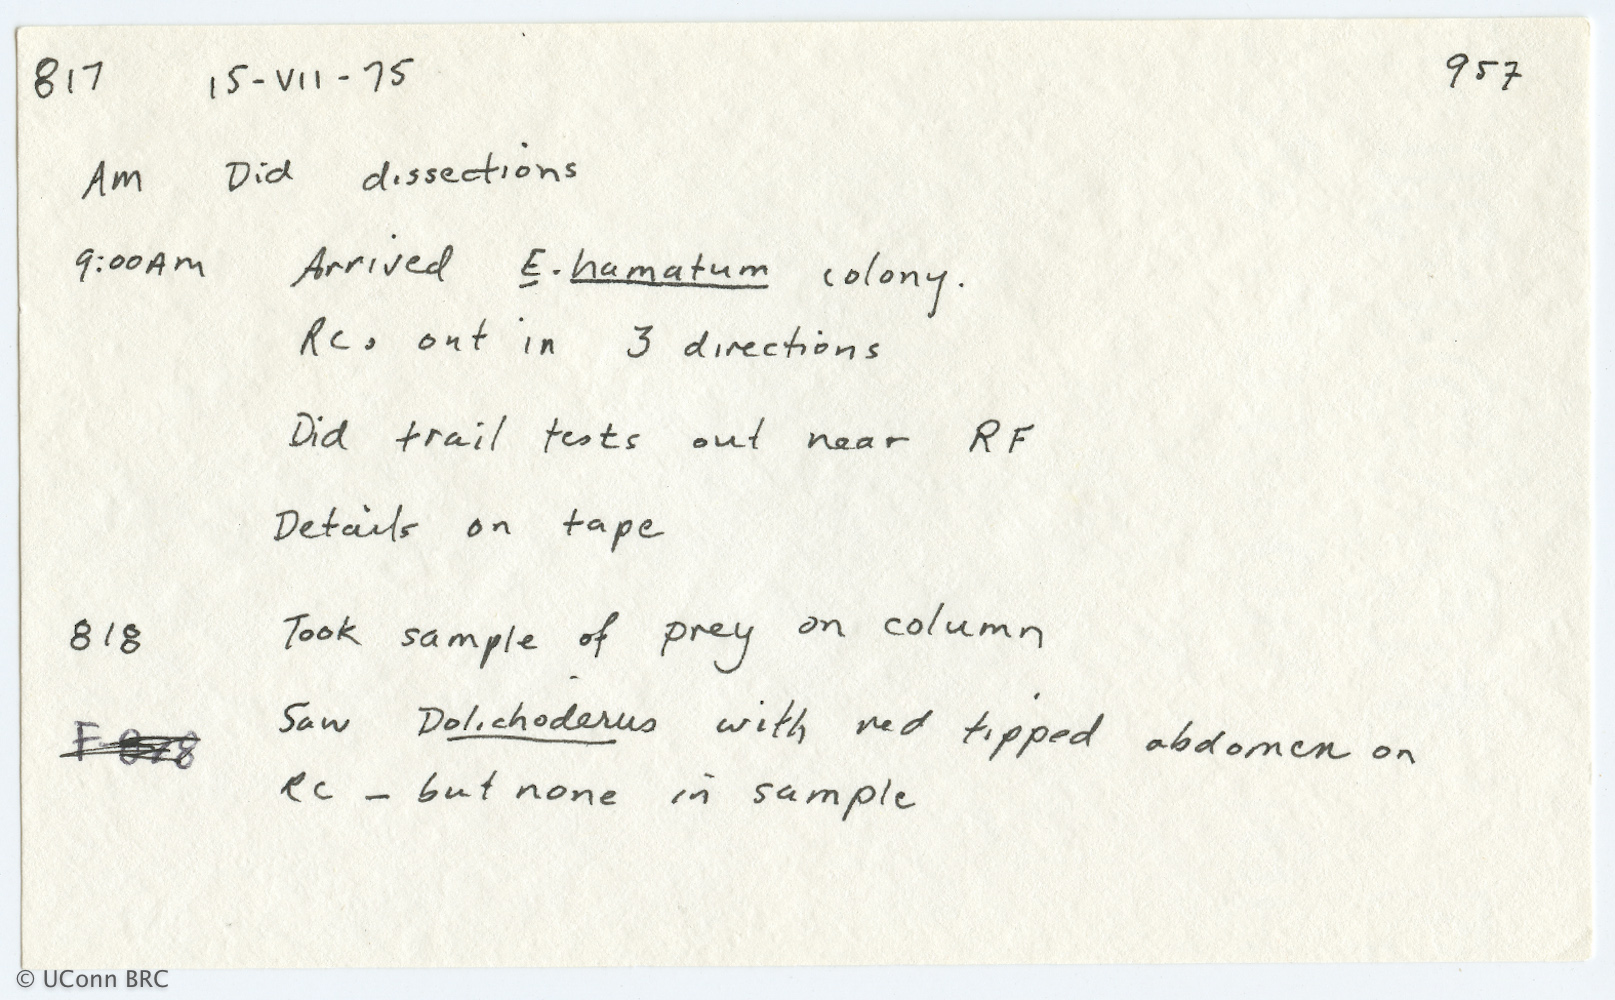 817 15-VII-75 957
Am Did dissections
9:00Am Arrived E. hamatum colony.
Rc. out in 3 directions
Did trail tests out near RF
Details on tape
818 Took sample of prey on column
Saw Dolichoderus with red tipped abdomen on
F-878
Rc - but none in sample
© UConn BRC